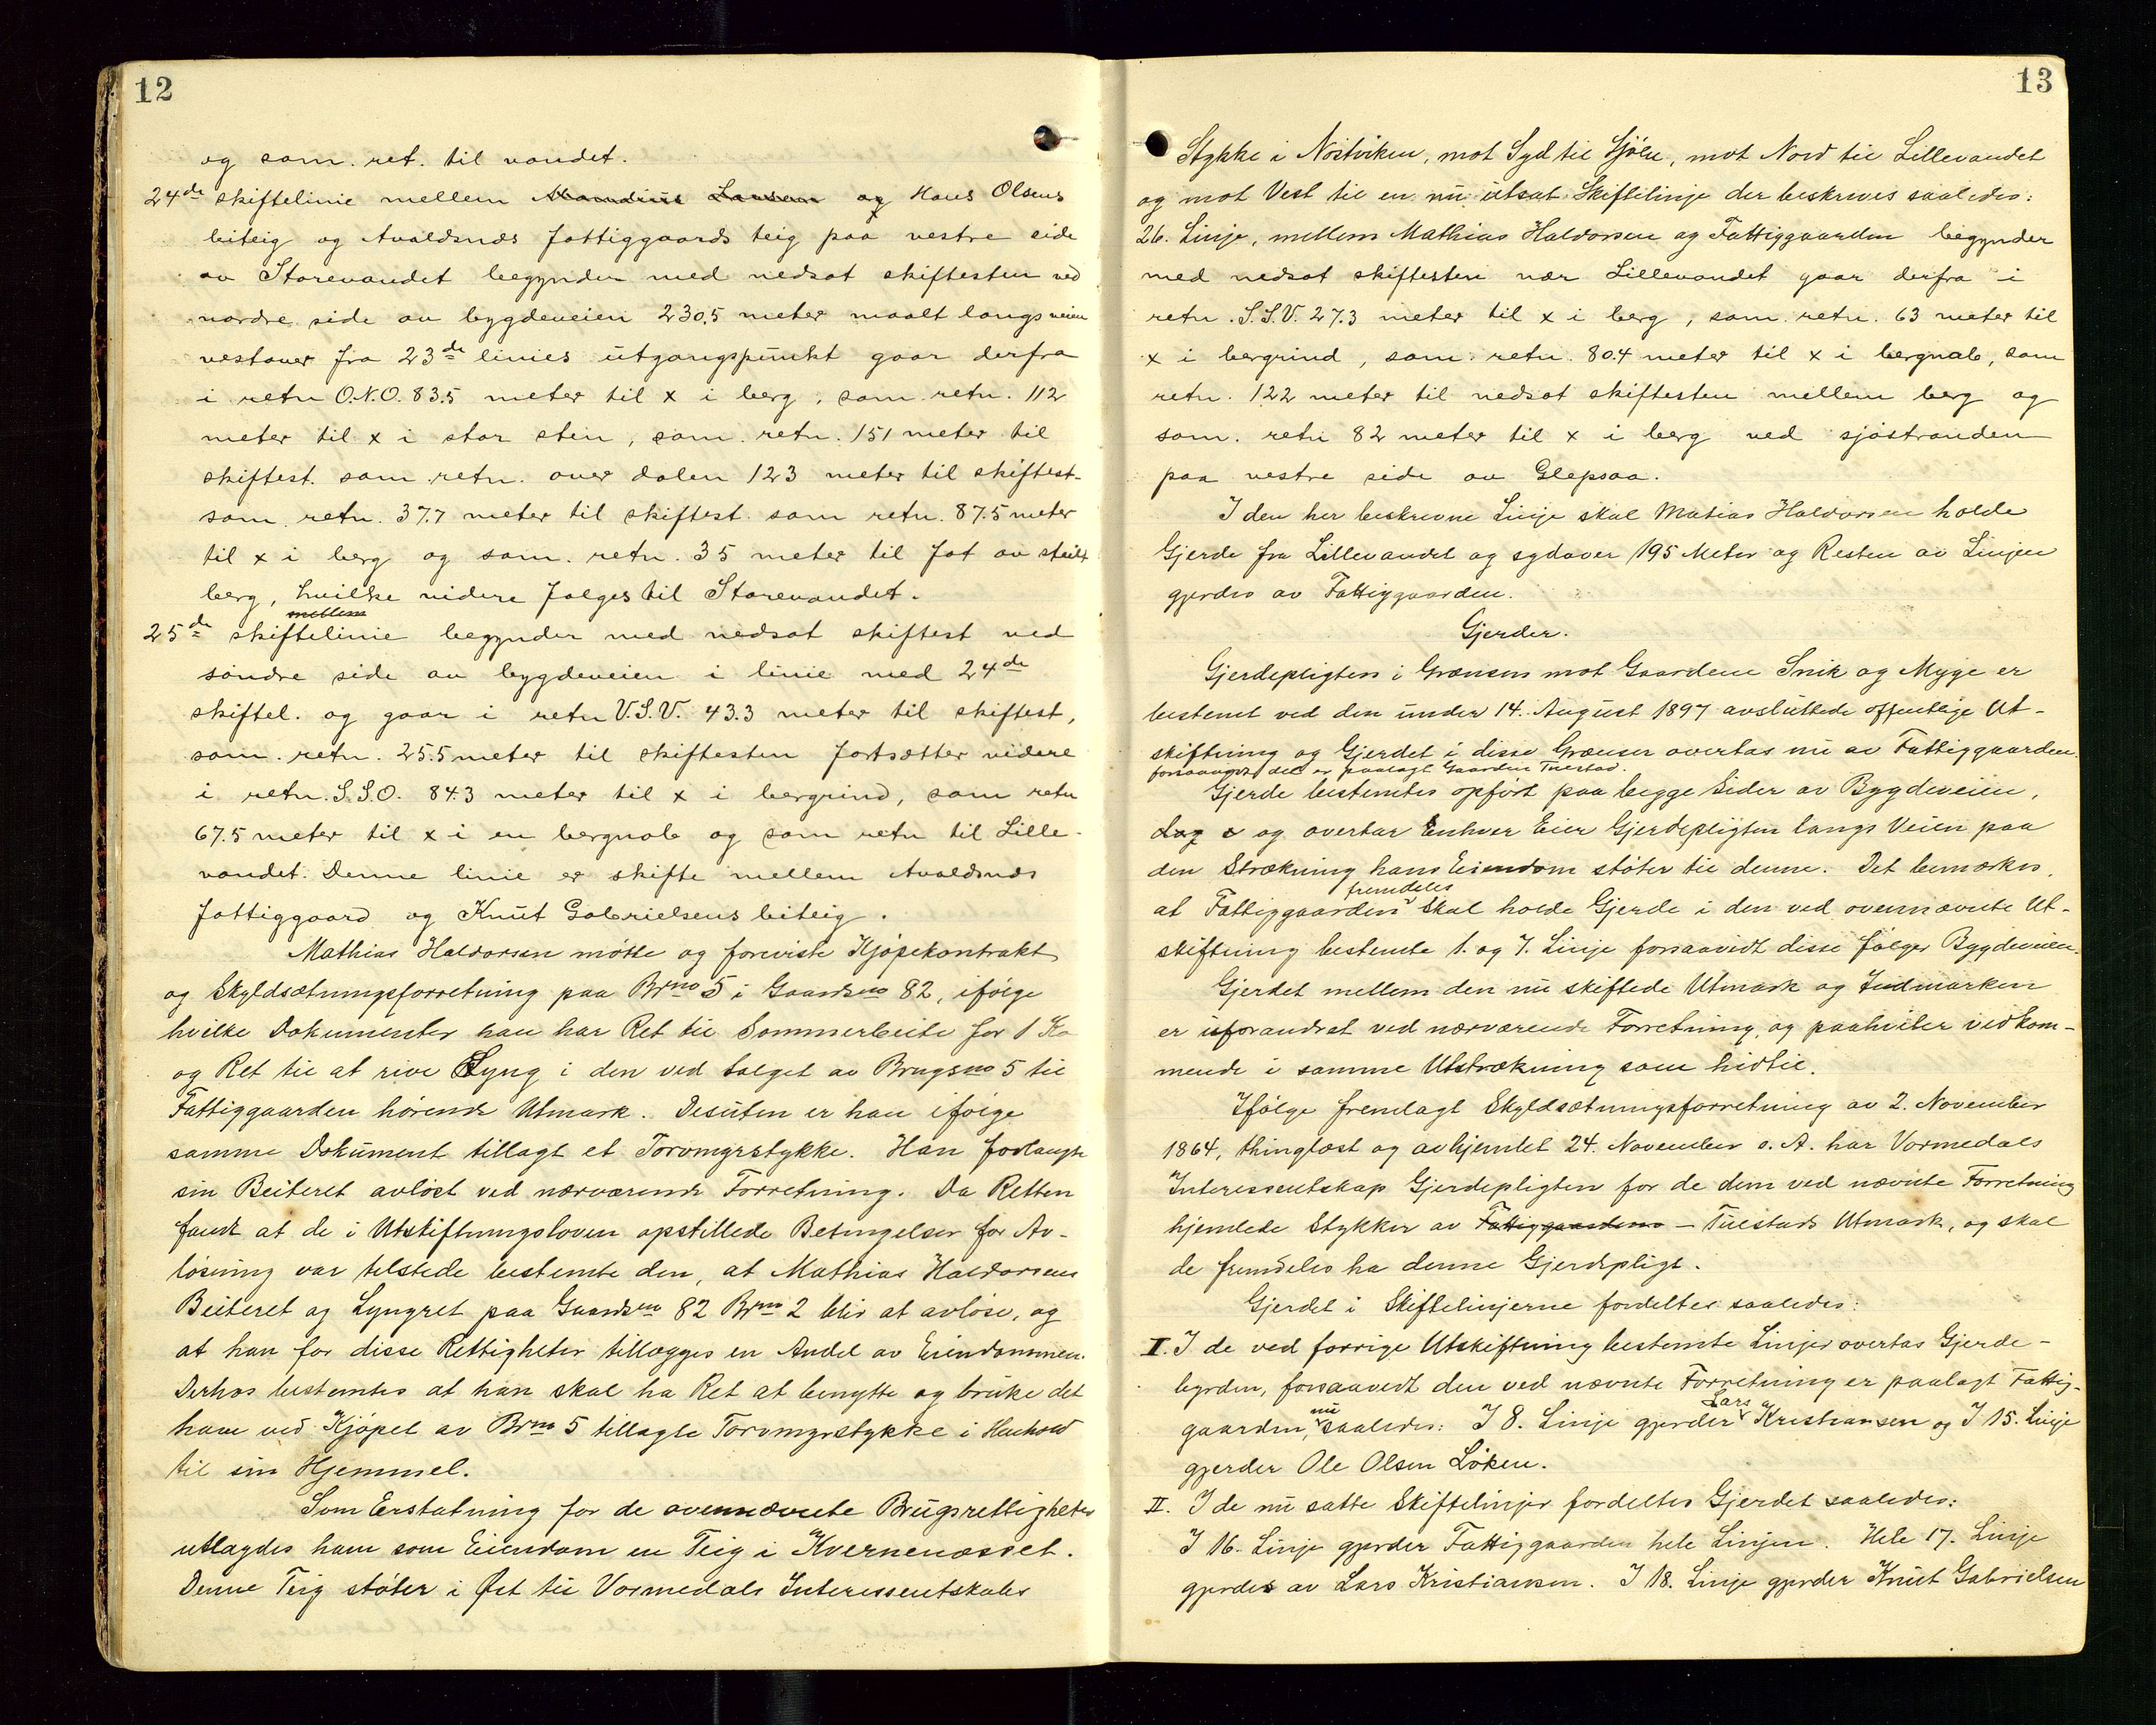 12
og sam. ret. til vandet.
24de skiftelinie mellem Mandius Larsen og Hans Olsens
beiteig og Avaldsnds fattiggaards teig paa vestre side
av Storevandet begynder med nedsat skiftesten ved
nordre side av bygdeveien 230.5 meter maalt langs veien
vestover fra 23de linies utgangspunkt gaar derfra
i retn O.N.O. 83.5 meter til x i berg, sam. retn. 112
meter til x i stor sten, sam. retn. 151 meter til
skiftest. sam. retn. over dalen 123 meter til skiftest.
sam. retn. 37.7 meter til skiftest. sam retn. 87.5 meter
til x i berg og sam. retn. 35 meter til fot av steilt
berg, hvilke videre følges til Storevandet.
mellem
25de skiftelinie begynder med nedsat skiftest ved
søndre side av bygdeveien i linie med 24de
skiftel. og gaar i retn V.S.V. 43.3 meter til skiftest,
sam. retn. 25.5 meter til skiftesten fortsætter videre
i retn. S.S.O. 84.3 meter til x i bergrind, sam retn
67.5 meter til x i en bergnab og sam retn til Lille-
vandet. Denne linie er skifte mellem Avaldsnds
fattiggaard og Knut Gabrielsens beiteig.
Mathias Haldorsen møtte og foreviste Kjøpekontrakt
og Skyldsætningsforretning paa Brno 5 i Gaardsno 82, ifølge
hvilke Dokumenter han har Ret til Sommerbeite for 1 Ko
og Ret til at rive Lyng i den ved salget av Brugsno 5 til
Fattiggaarden hørende Utmark. Desuten er han ifølge
samme Dokument tillagt et Torvmyrstykke. Han forlangte
sin Beiteret avløst ved nærværende Forretning. Da Retten
fandt at de i Utskiftningsloven opstillede Betingelser for Av-
løsning var tilstede bestemte den, at Mathias Haldorsens
Beiteret og Lyngret paa Gaardsno 82 Brno 2 blir at avløse, og
at han for disse Rettigheter tillægges en Andel av Eiendommen.
Derhos bestemtes at han skal ha Ret at benytte og bruke det
ham ved Kjøpet av Brno 5 tillagte Torvmyrstykke i Henhold
til sin Hjemmel.
Som Erstatning for de ovennævnte Brugsrettigheter
utlagdes ham som Eiendom en Teig i Kvernenæsset.
Denne Teig støter i Øst til Vormedals Interessentskabs
13
Stykke i Nøstviken, mot Syd til Sjøen, mot Nord til Lillevandet
og mot Vest til en nu utsat Skiftelinje der beskrives saaledes:
26. Linje, mellem Mathias Haldorsen og Fattiggaarden begynder
med nedsat skiftesten nær Lillevandet gaar derfra i
retn. S.S.V. 27.3 meter til x i berg, sam. retn. 63 meter til
x i bergrind, sam. retn. 80.4 meter til x i bergnab, sam
retn. 122 meter til nedsat skiftesten mellem berg og
sam. retn 82 meter til x i berg ved sjøstranden
paa vestre side av Glepsaa.
I den her beskrevne Linje skal Matias Haldorsen holde
Gjerde fra Lillevandet og sydover 195 Meter og Resten av Linjen
gjerdes av Fattiggaarden.
Gjerder.
Gjerdepligten i Grænsen mot Gaardene Snik og Myge er
bestemt ved den under 14. August 1897 avsluttede offentlige Ut-
skiftning og Gjerdet i disse Grænser overtas nu av Fattiggaarden
forsaavidt det er paalagt Gaarden Tuestad.
Gjerde bestemtes opført paa begge Sider av Bygdeveien,
og overtar Enhver Eier Gjerdepligten langs Veien paa
den Strækning hans Eiendom støter til denne. Det bemærkes,
at Fattiggaarden fremdeles skal holde Gjerde i den ved ovennævnte Ut-
skiftning bestemte 1. og 7. Linje forsaavidt disse følger Bygdeveien.
Gjerdet mellem den nu skiftede Utmark og Indmarken
er uforandret ved nærværende Forretning, og paahviler vedkom-
mende i samme Utstrækning som hidtil.
Ifølge fremlagt Skyldsætningsforretning av 2. November
1864, thinglæst og avhjemlet 24. November s. A. har Vormedals
Interessentskap Gjerdepligten for de dem ved nævnte Forretning
hjemlede Stykker av Fattiggaardens - Tuestads Utmark, og skal
de fremdeles ha denne Gjerdepligt.
Gjerdet i Skiftelinjerne fordeltes saaledes:
I. I de ved forrige Utskiftning bestemte Linjer overtas Gjerde-
byrden, forsaavidt den ved nævnte Forretning er paalagt Fattig-
gaarden, nu saaledes: I 8. Linje gjerder Lars Kristiansen og I 15. Linje
gjerder Ole Olsen Løken.
II. I de nu satte Skiftelinjer fordeltes Gjerdet saaledes:
I 16. Linje gjerder Fattiggaarden hele Linjen. Hele 17. Linje
gjerdes av Lars Kristiansen. I 18. Linje gjerder Knut Gabrielsen